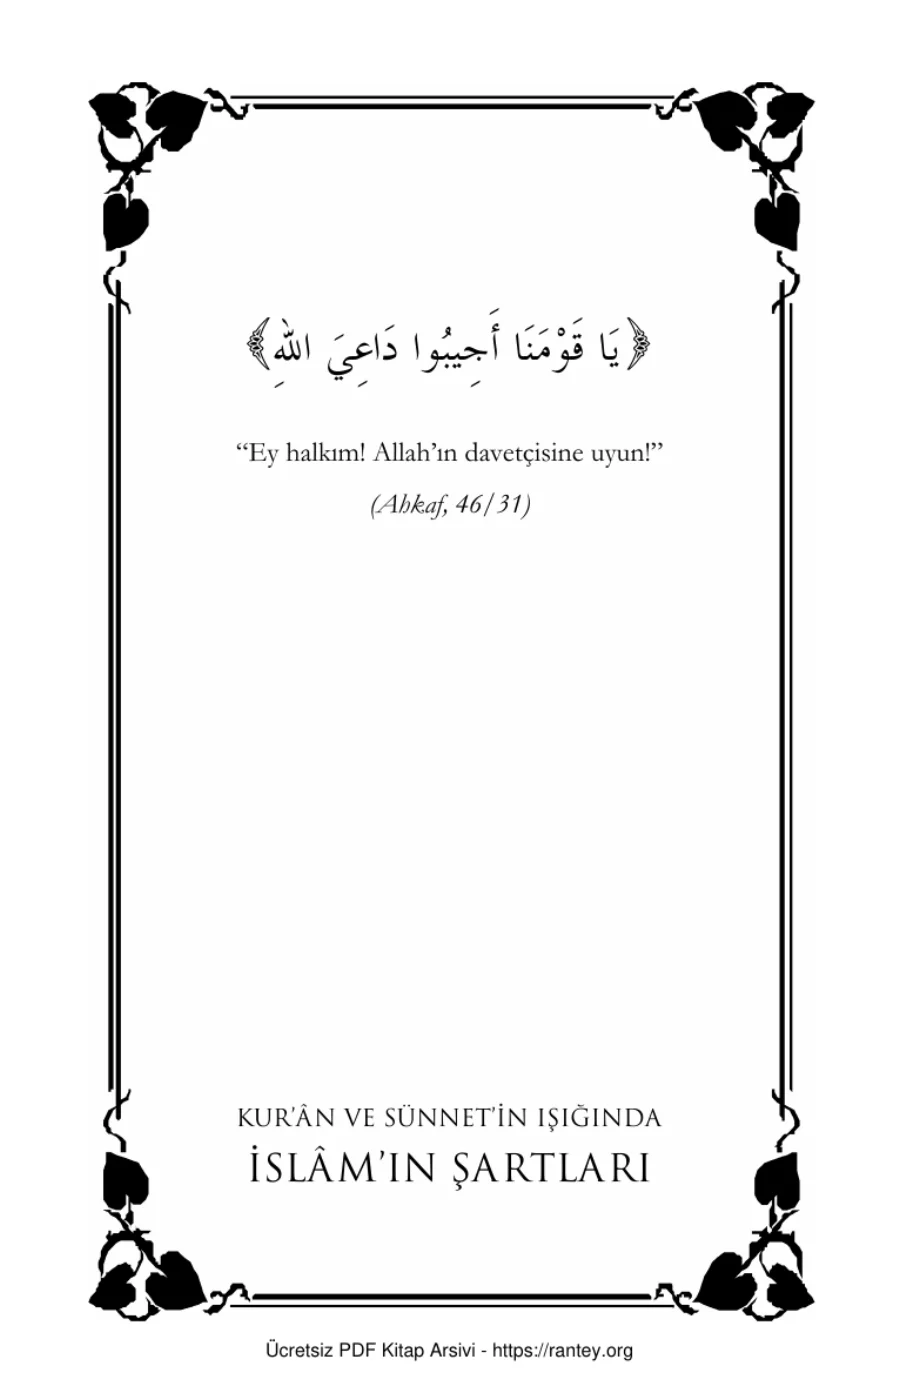 ﴿يَا قَوْمَنَا أَجِيبُوا دَاعِيَ اللّٰهِ﴾
“Ey halkım! Allah’ın davetçisine uyun!”
(Ahkaf, 46/31)
KUR’ÂN VE SÜNNET’İN IŞIĞINDA
İSLÂM’IN ŞARTLARI
Ücretsiz PDF Kitap Arsivi - https://rantey.org